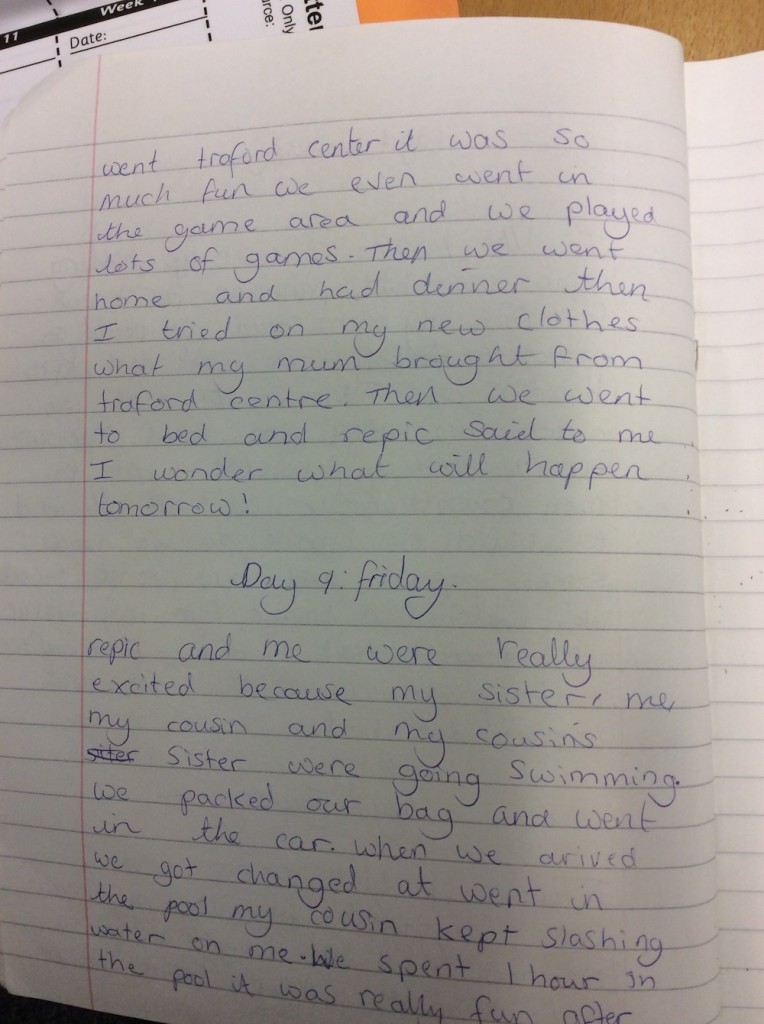 11
Week
Date:
Only
went traford center it was so
much fun we even went in
the game area and we played
lots of games. Then we went
home and had dinner then
I tried on my new clothes
what my mum brought from
traford centre. Then we went
to bed and repic said to me
I wonder what will happen
tomorrow!
Day 9: friday.
repic and me were really
excited because my sister, me,
my cousin and my cousins
sister were going swimming.
we packed our bag and went
in the car. when we arived
we got changed at went in
the pool my cousin kept slashing
water on me. We spent 1 hour in
the pool it was really fun after